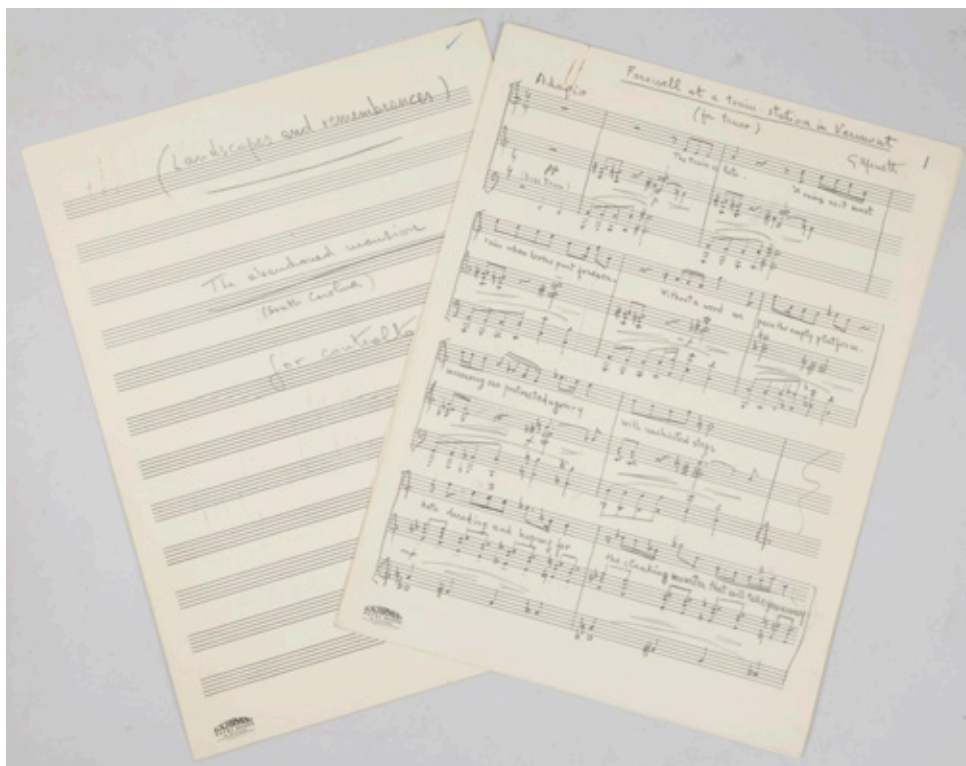 (Landscapes and remembrances)
The abandoned mansion
(South Carolina)
for contralto
Farewell at a train station in Vermont
(for tenor)
1
Adagio
pp
The train is late.
rain when lovers part forever.
Without a word we
pace the empty platform.
our protracted agony
with unchecked steps
3
both dreading and hoping for
the clanking monster that will take you away
mp